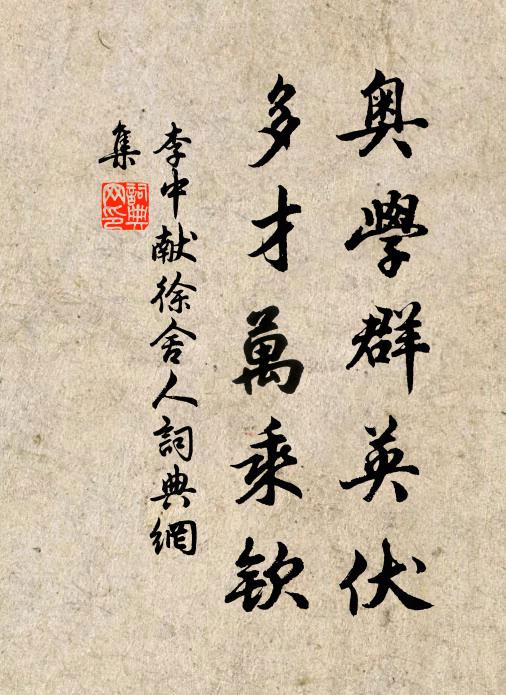 奥學群英伏
多才萬乘欽
李中献徐舍人詞典網
集
詞典
网印